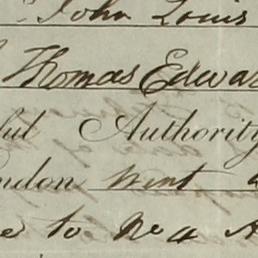 John Louis
Thomas Edwar
ful Authority
ndon went a
e to